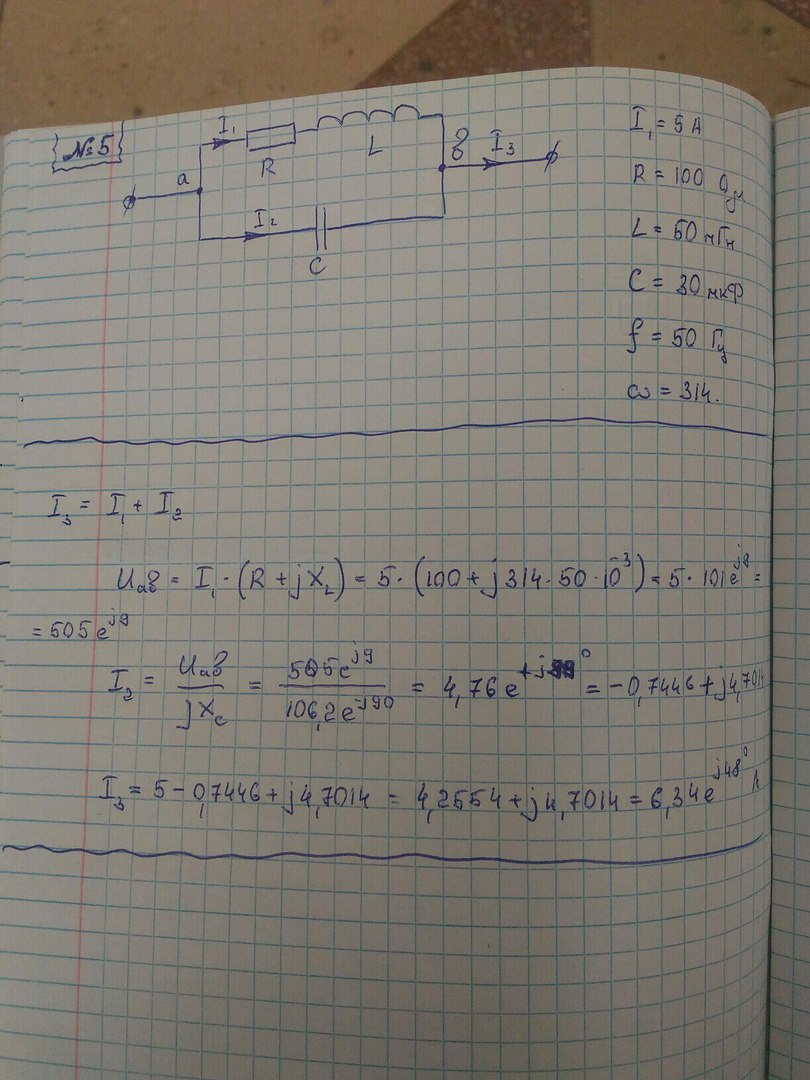 №5
I₁
R
L
a
I₂
C
в
I₃
I₁ = 5 A
R = 100 Ом
L = 50 мГн
C = 30 мкФ
f = 50 Гц
ω = 314.
I₃ = I₁ + I₂
Uав = I₁ · (R + jX_L) = 5 · (100 + j314 · 50 · 10⁻³) = 5 · 101e^{j9} =
= 505 e^{j9}
I₂ = Uав / jX_c = 505e^{j9} / 106,2e^{-j90} = 4,76 e^{+j99°} = -0,7446 + j4,7014
I₃ = 5 - 0,7446 + j4,7014 = 4,2554 + j4,7014 = 6,34e^{j48°} А